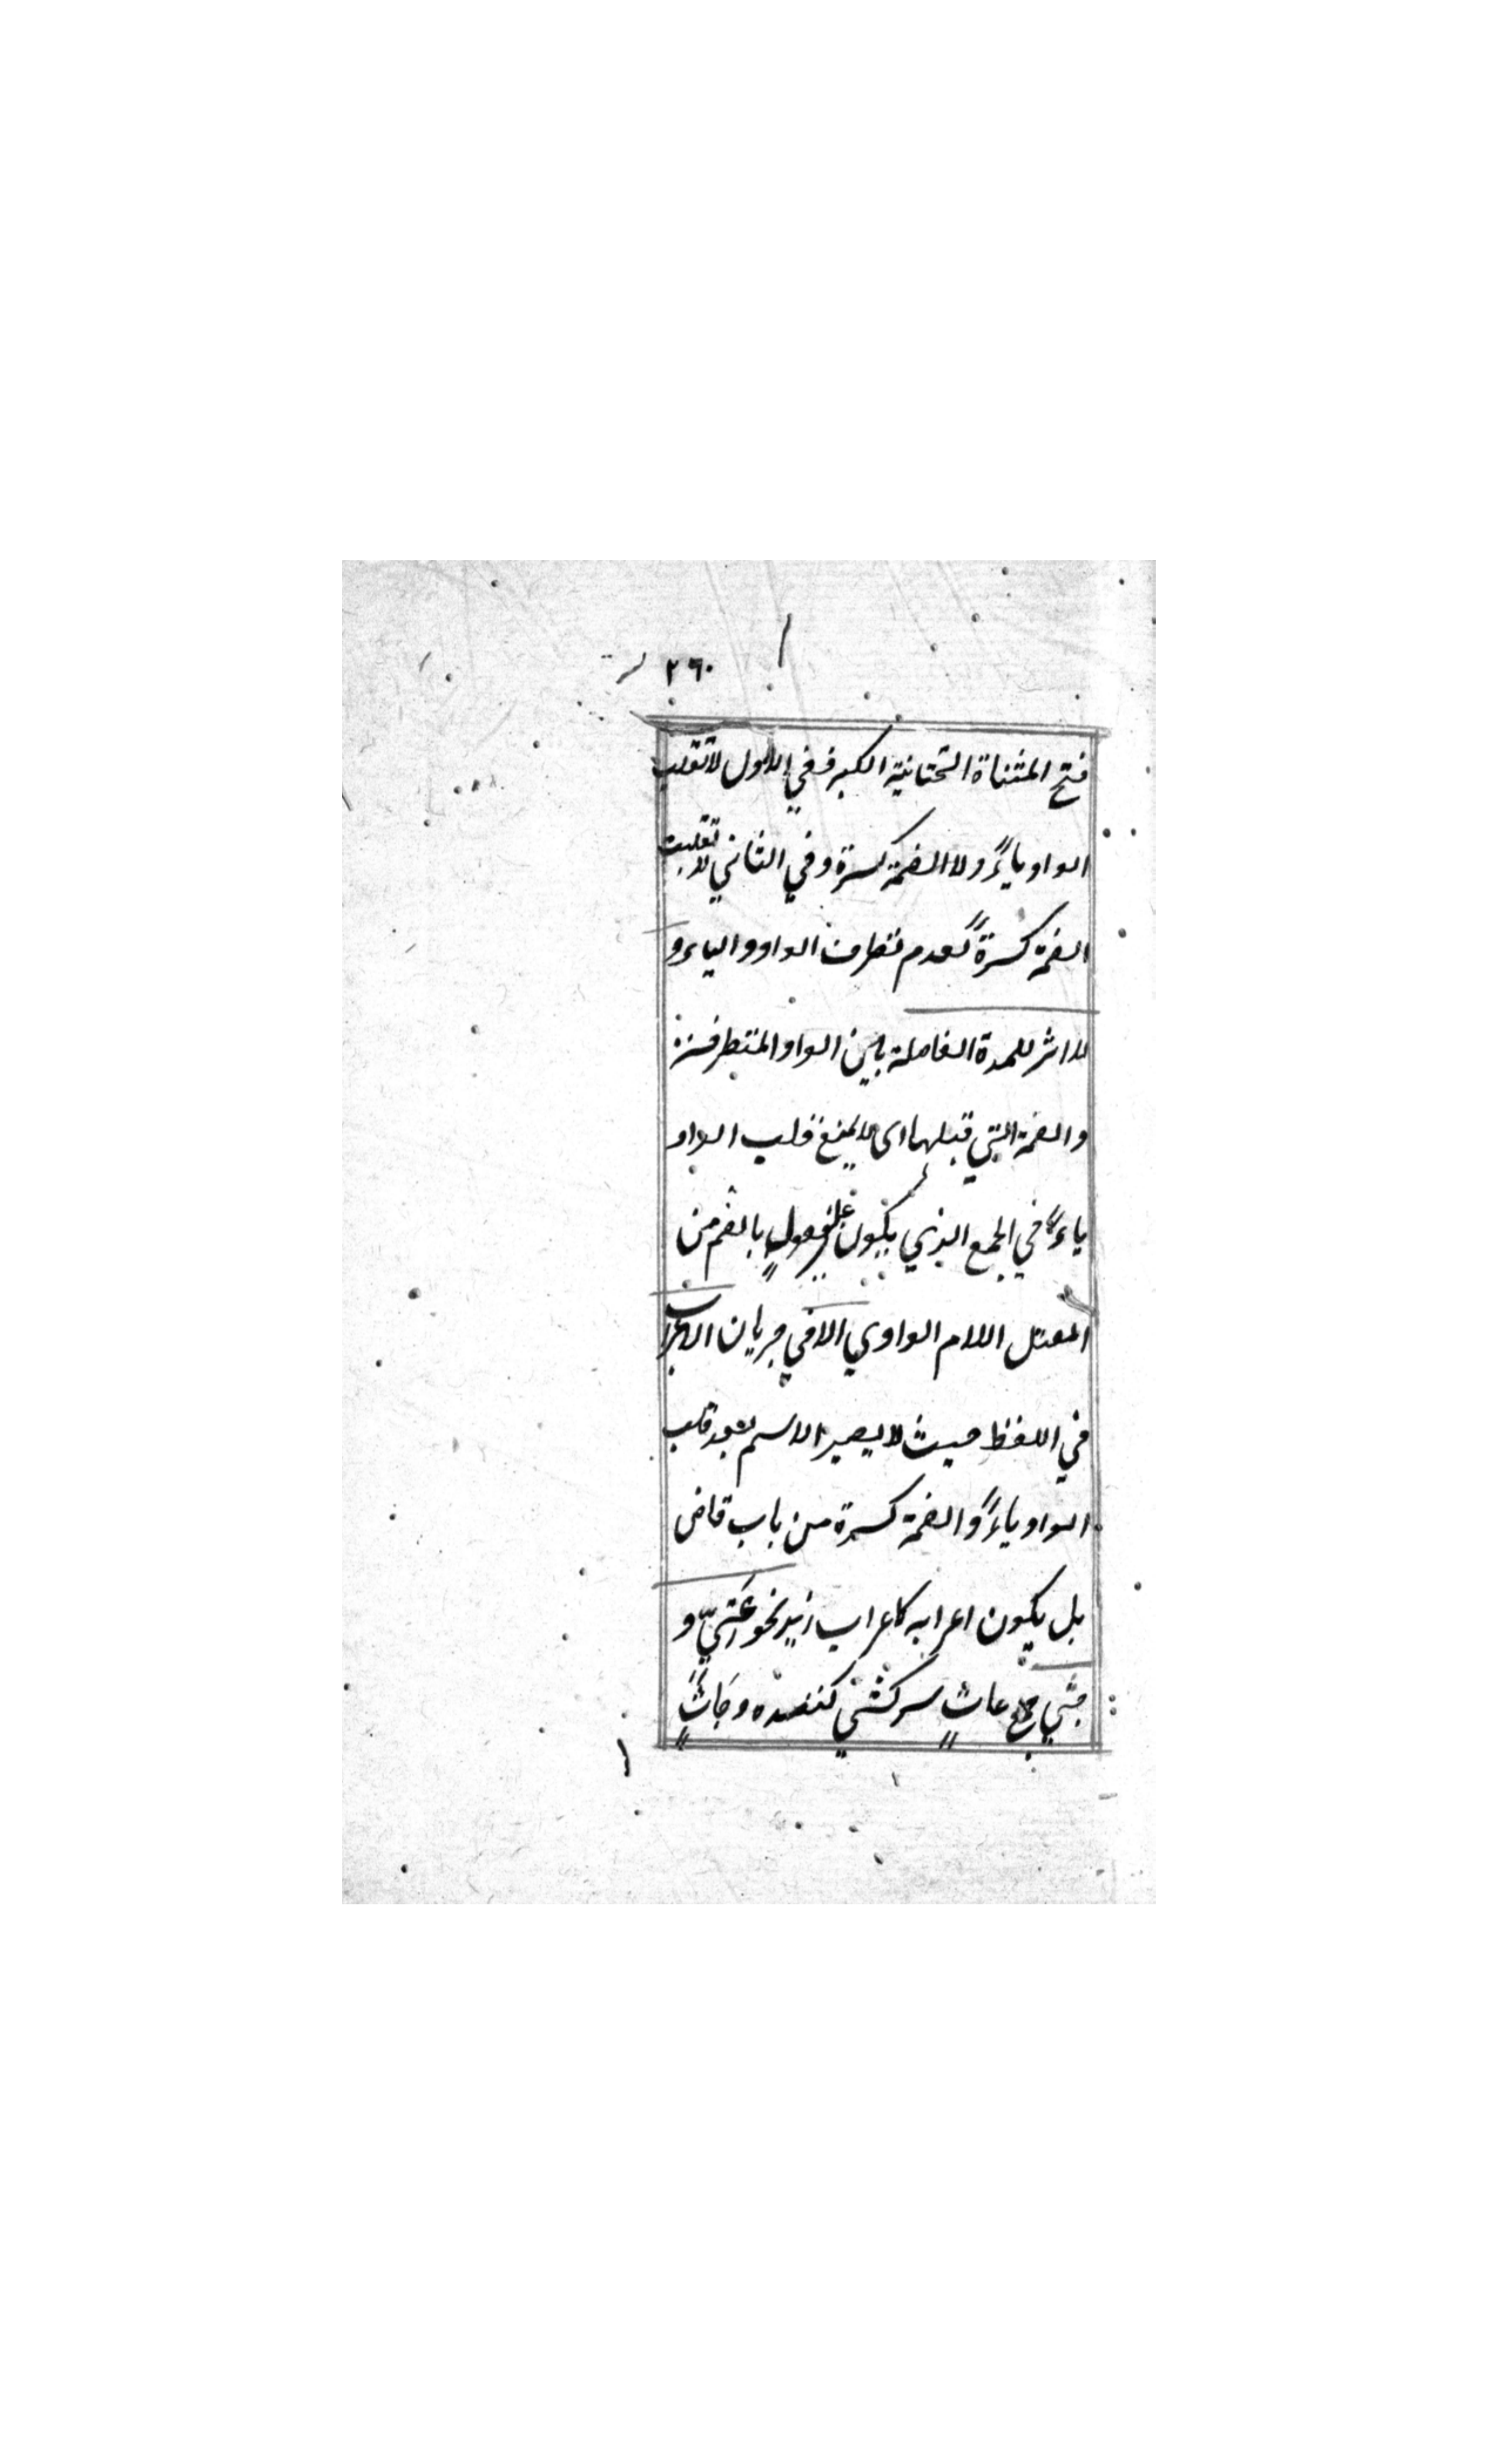 ٢٦٠
فتح المثناة التحتانية الكبرٰ ففي الاول لا تقلب
الواو ياءً ولا الضمة كسرة وفي الثاني لا تقلبت
الضمة كسرةً لعدم تطرف الواو والياء و
لا اثر للمدة الفاصلة بين الواو المتطرفة
والضمة التي قبلها اى لا يمنع قلب الواو
ياءً في الجمع الذي يكون على فعولٍ بالضم من
المعتل اللام الواوي الا في جريان الاعراب
في اللفظ حيث لا يصير الاسم بعد قلب
الواو ياءً والضمة كسرة من باب قاض
بل يكون اعرابه كاعراب زيد نحو عَتيّ و
جثي جمع عاتٍ سركشي كننده وجَاثٍ